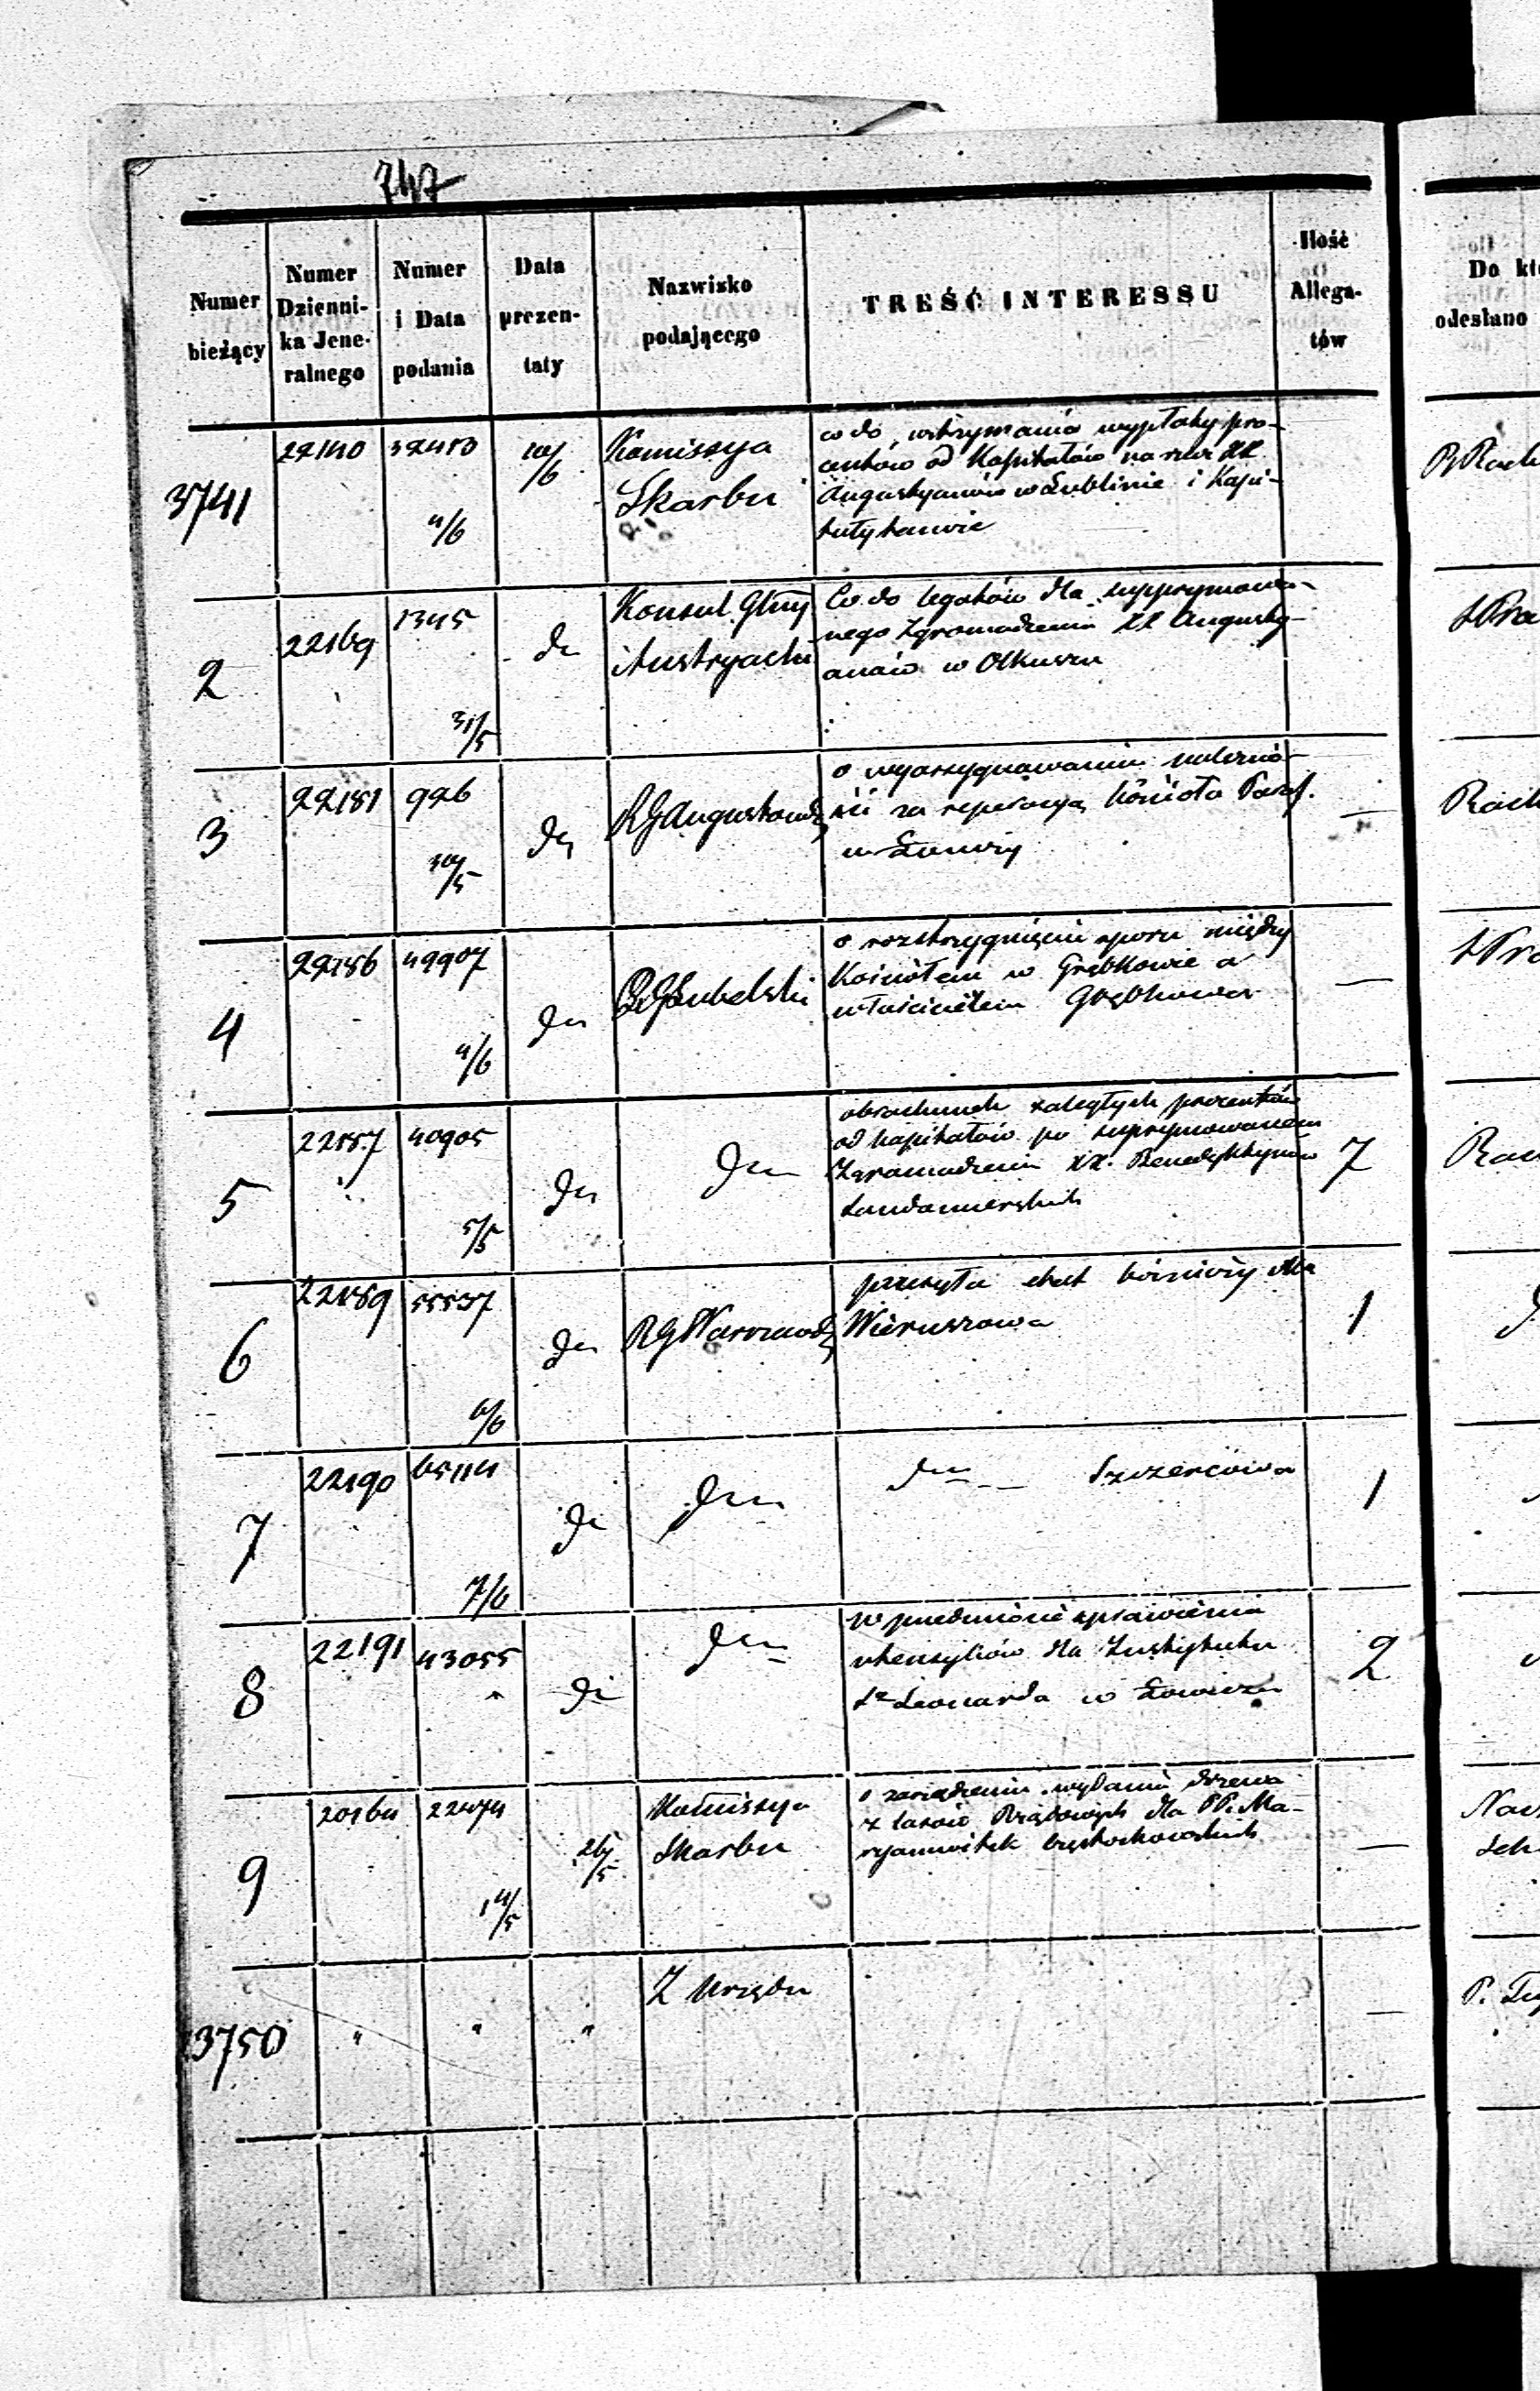 747
Numer bieżący
Numer Dzienni- ka Jene- ralnego
Numer i Data podania
Data prezen- taty
Nazwisko podającego
TREŚĆ INTERESSU
Ilość Allega- tów
Do kt
odesłano
3741 22140 32413 4/6 10/6
Komissya
Skarbu
co do wstrzymania wypłaty pro-
centów od Kapitałów na rzecz XX
Augustyanów w Lublinie i Kapi-
tuły
2 22169 1345 31/5
Konsul
Austryacki
Co do legatów dla supprymowa-
nego Zgromadzenia XX Augusty-
anów w Olkuszu
3 22181 926 30/5
RG Augustowski
o wyassygnowanie należno-
ści za reperacyą kościoła Paraf.
w Łomży
Rach
4 22186 49907 4/6
RG Lubelski
o rozstrzygnięcie sporu między
Kościołem w Grębkowie a
właścicielem Grębkowa
5 22187 40905 5/5
obrachunek zaległych procentów
od kapitałów po supprymowanem
Zgromadzeniu XX. Benedyktynów
7
6 22189 55537 6/6
RG Warszawski
przesyła etat bóżniczy dla
Wieruszowa
1
7 22190 65114 7/6
Szczercowa
1
8 22191 43055
w przedmiocie sprawienia
utensyliów dla Instytutu
Leonarda w Łowiczu
2
9 20164 22474 14/5 26/5
Komissya
Skarbu
o zarządzenie wydania drzewa
z lasów Rządowych dla PP. Ma-
ryawitek Częstochowskich
3750 " " "
Z Urzędu